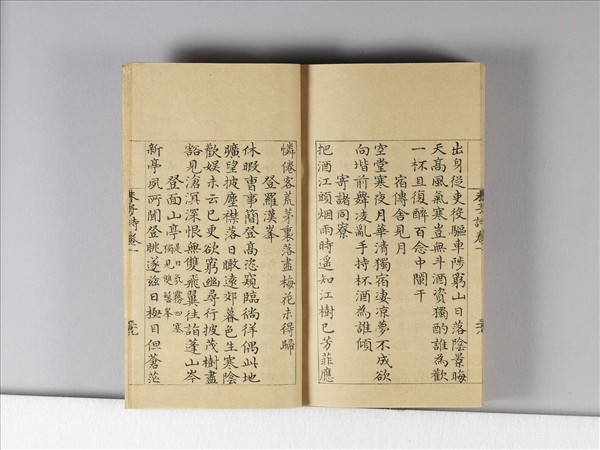 出身從吏役驅車陟窮山日落陰景晦
天高風氣寒豈無斗酒資獨酌誰為歡
一杯且復醉百念中闌干
宿傳舍見月
空堂寒夜月華清獨宿淒涼夢不成欲
向堦前舞凌亂手持杯酒為誰傾
寄諸同寮
把酒江頭烟雨時遙知江樹已芳菲應
憐倦客荒茅裏落盡梅花未得歸
登羅漢峯
休暇曹事簡登高恣窺臨徜徉偶此地
曠望披塵襟落日曒遠郊暮色生寒陰
歡娛未云已更欲窮幽尋行披茂樹盡
豁見滄溟深恨無雙飛翼往詣蓬山岑
登面山亭
是日氛霧四塞
獨見雙髻峯
新亭夙所聞登眺遂茲日極目但蒼茫